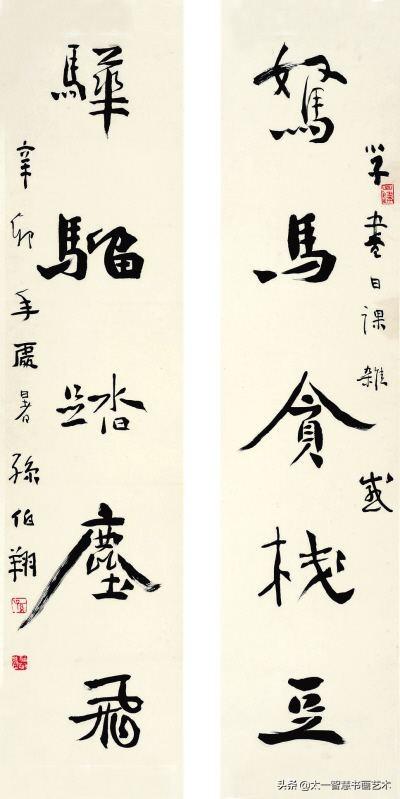 学日課雜感
駑馬貪栈豆
驊騮踏塵飛
辛卯年處暑孫伯翔
头条@太一智慧书画艺术